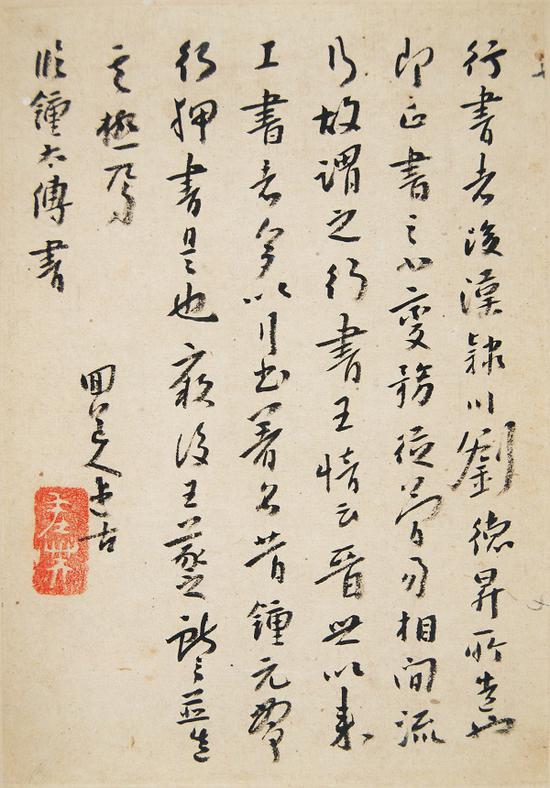 行書者後漢潁川劉德昇所造也
即正書之小變務從簡易相間流
行故謂之行書王愔云晉世以來
工書者多以行書著名昔鍾元常
行押書是也厥後王羲之獻之並造
其極焉
臨鍾太傅書
人
古